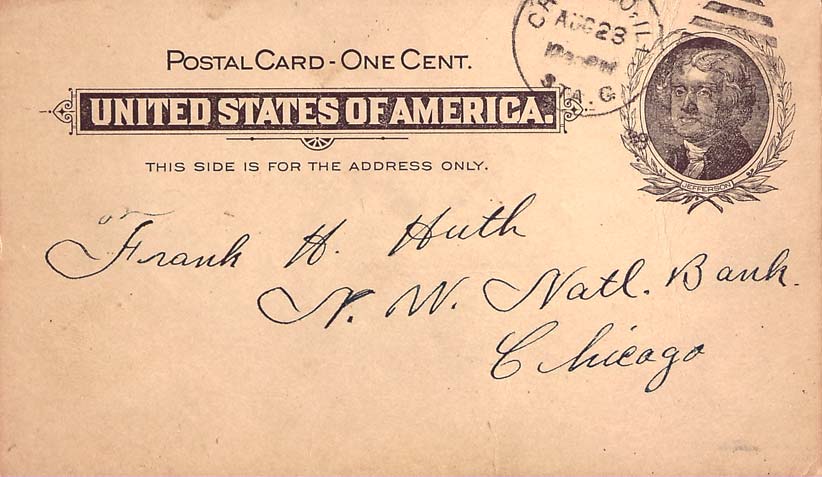 POSTAL CARD - ONE CENT.
UNITED STATES OF AMERICA.
THIS SIDE IS FOR THE ADDRESS ONLY.
AUG 23
STA. G
JEFFERSON
Frank H. Huth
N. W. Natl. Bank.
Chicago